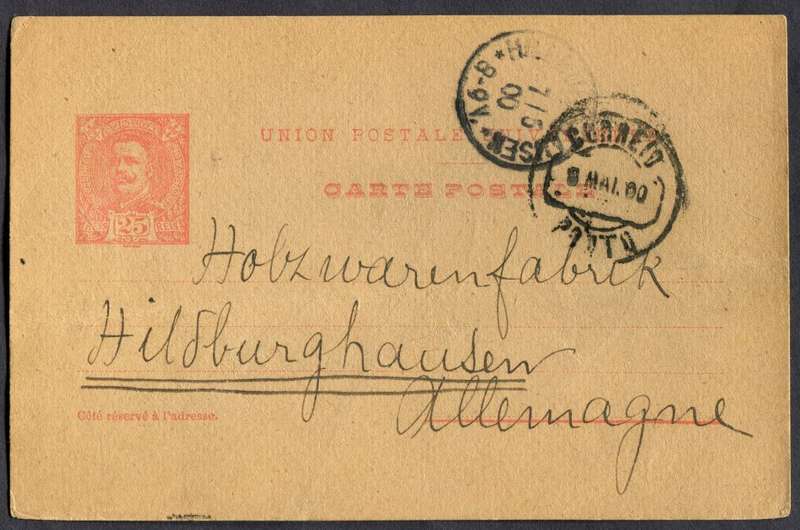 UNION POSTALE
CARTE POSTALE
25
CORREIO
8 MAI. 00
PORTO
Holzwarenfabrik
Hildburghausen
Allemagne
Côté réservé à l'adresse.